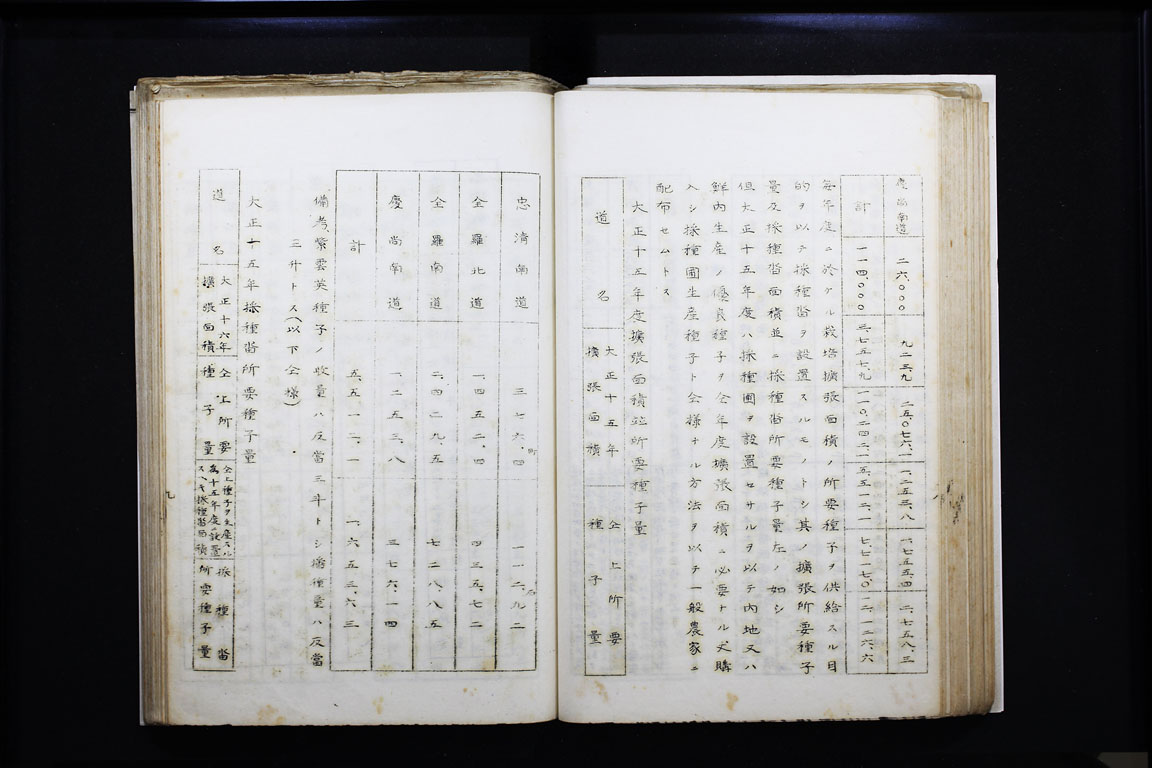 慶尚南道 二六、〇〇〇 九二三九 二五、〇七六、一 一、二五三、八 一、七五五、四 二、七五八、三
計 一一四、〇〇〇 三、七五七、九 一一〇、二四二、一 五、五一二、一 七、七一七、〇 二、一二六、六
毎年度ニ於ケル栽培擴張面積ノ所要種子ヲ供給スル目
的ヲ以テ採種畓ヲ設置スルモノトシ其ノ擴張所要種子
量及採種畓面積並ニ採種畓所要種子量左ノ如シ
但大正十五年度ハ採種圃ヲ設置セサルヲ以テ内地又ハ
鮮内生産ノ優良種子ヲ仝年度擴張面積ニ必要ナル丈購
入シ採種圃生産種子ト仝様ナル方法ヲ以テ一般農家ニ
配布セムトス
大正十五年度擴張面積並所要種子量
道名 大正十五年擴張面積 仝上所要種子量
忠清南道 三七六、四町 一一二、九二石
全羅北道 一、四五二、四 四三五、七二
全羅南道 二、四二九、五 七二八、八五
慶尚南道 一、二五三、八 三七六、一四
計 五、五一二、一 一、六五三、六三
備考、紫雲英種子ノ收量ハ反當三斗トシ播種量ハ反當
三升トス(以下仝様)
大正十五年採種畓所要種子量
道名 大正十六年擴張面積 仝上所要種子量 仝上種子ヲ生産スル為十五年度ニ設置スヘキ採種畓面積 採種畓所要種子量